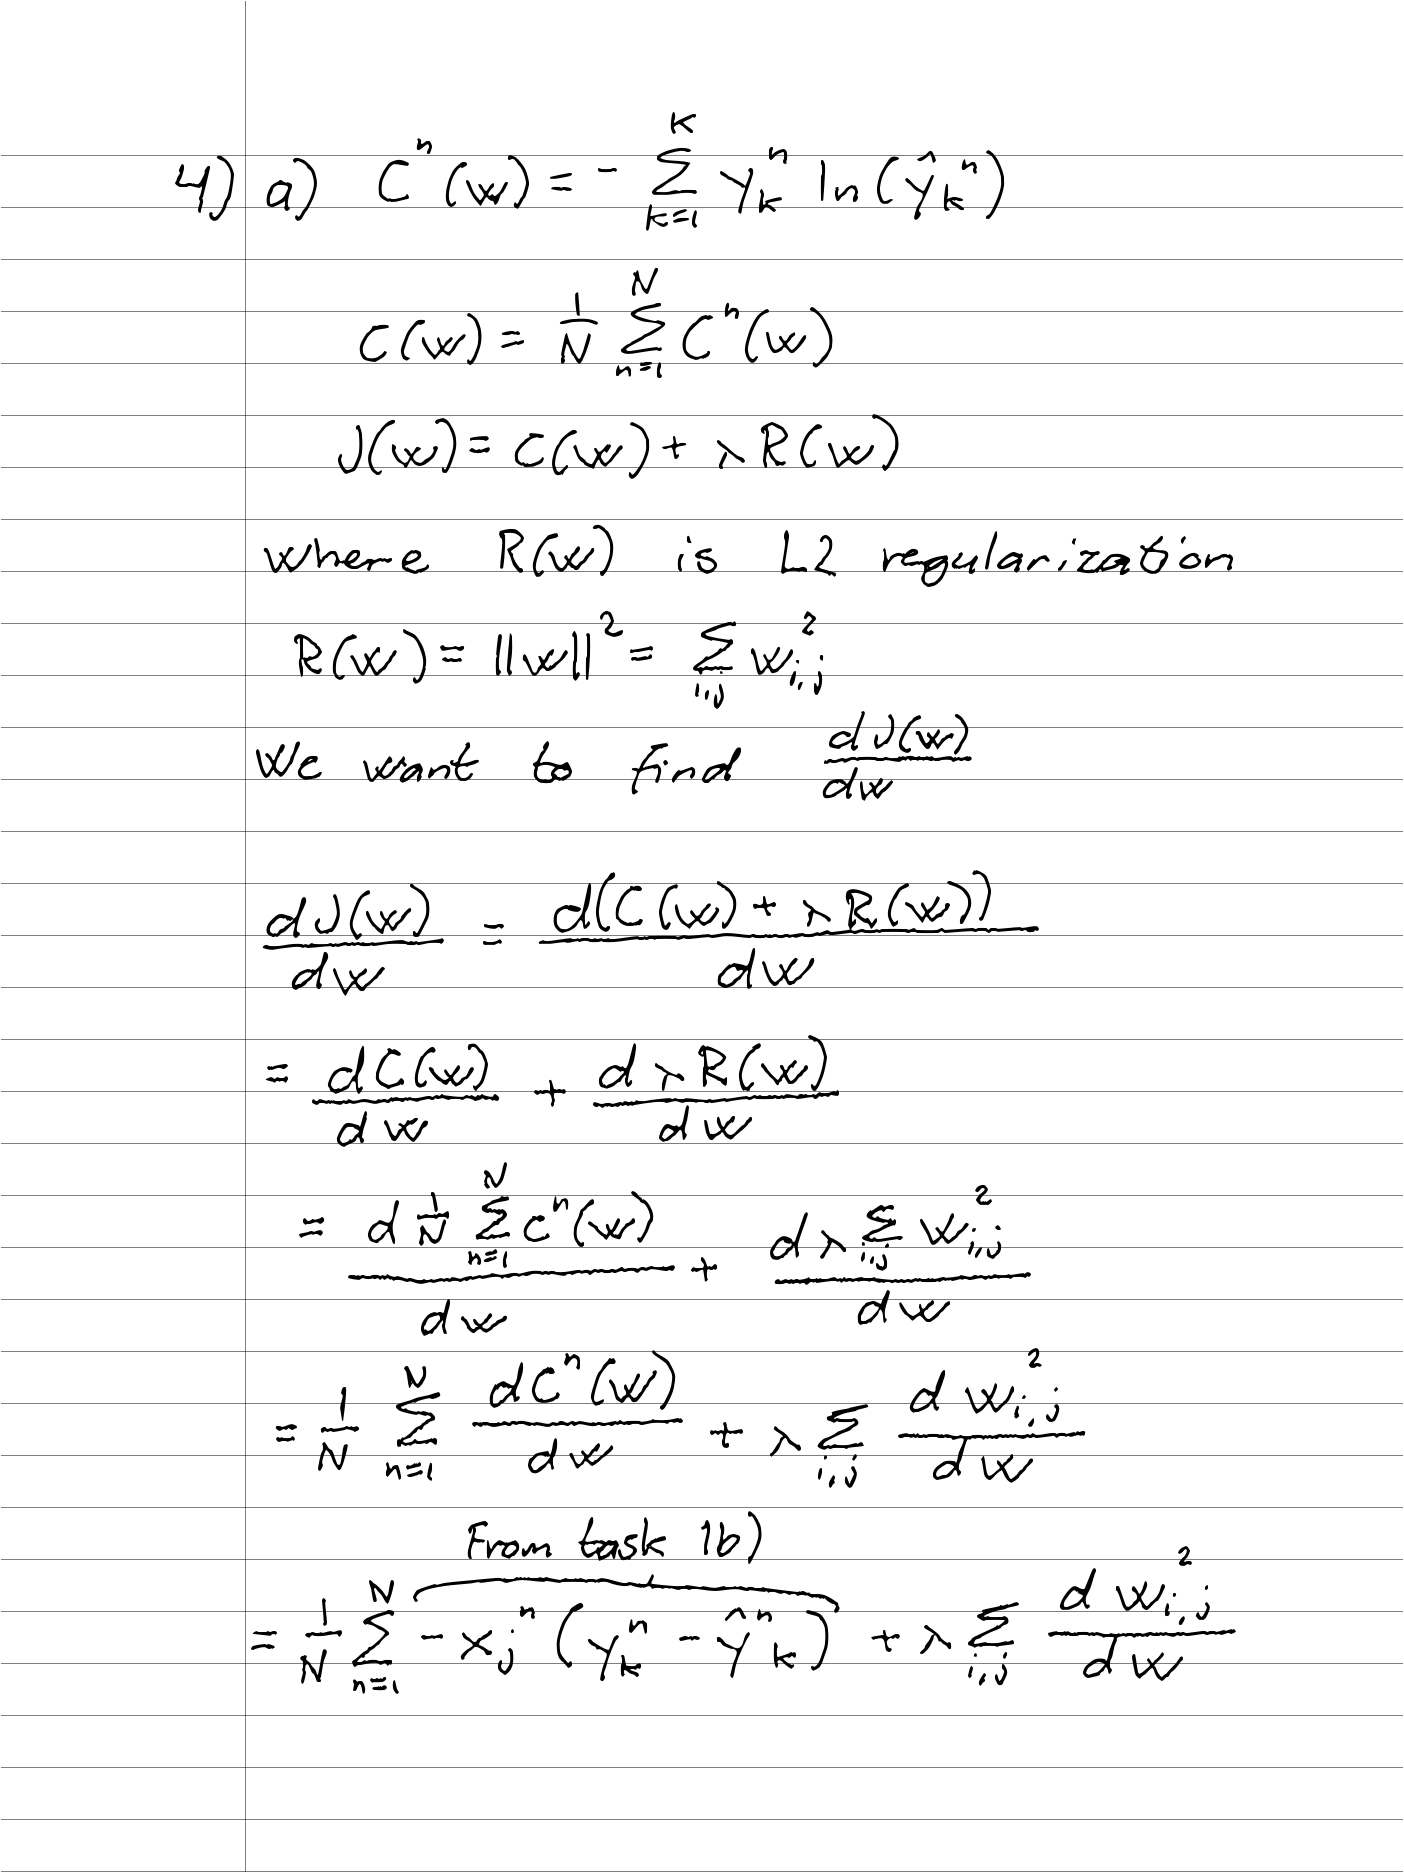 4) a) Cⁿ(w) = - Σ_{k=1}^{K} y_k^n ln(ŷ_k^n)
C(w) = 1/N Σ_{n=1}^{N} Cⁿ(w)
J(w) = C(w) + λ R(w)
where R(w) is L2 regularization
R(w) = ||w||² = Σ_{i,j} w_{i,j}²
We want to find dJ(w)/dw
dJ(w)/dw = d(C(w) + λ R(w))/dw
= dC(w)/dw + dλR(w)/dw
= d 1/N Σ_{n=1}^{N} Cⁿ(w)/dw + dλ Σ_{i,j} w_{i,j}²/dw
= 1/N Σ_{n=1}^{N} dCⁿ(w)/dw + λ Σ_{i,j} d w_{i,j}²/dw
From task 1b)
= 1/N Σ_{n=1}^{N} -x_j^n (y_k^n - ŷ_k^n) + λ Σ_{i,j} d w_{i,j}²/dw